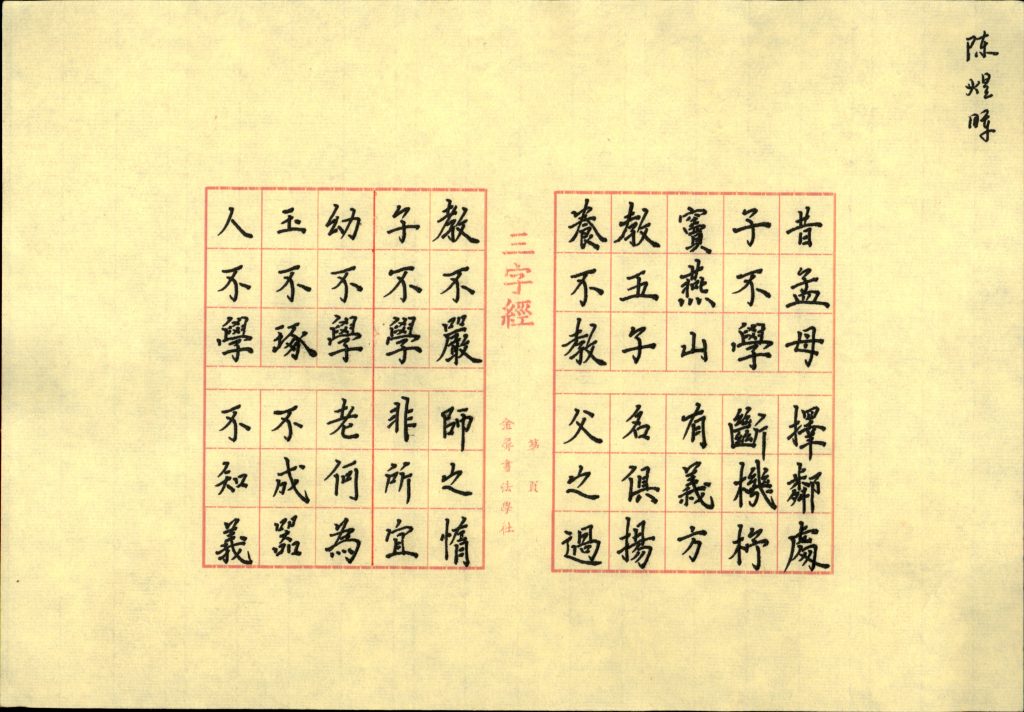 陈煜暉
昔孟母擇鄰處
子不學斷機杼
竇燕山有義方
教五子名俱揚
養不教父之過
三字經
第 頁
金石書法學社
教不嚴師之惰
子不學非所宜
幼不學老何為
玉不琢不成器
人不學不知義